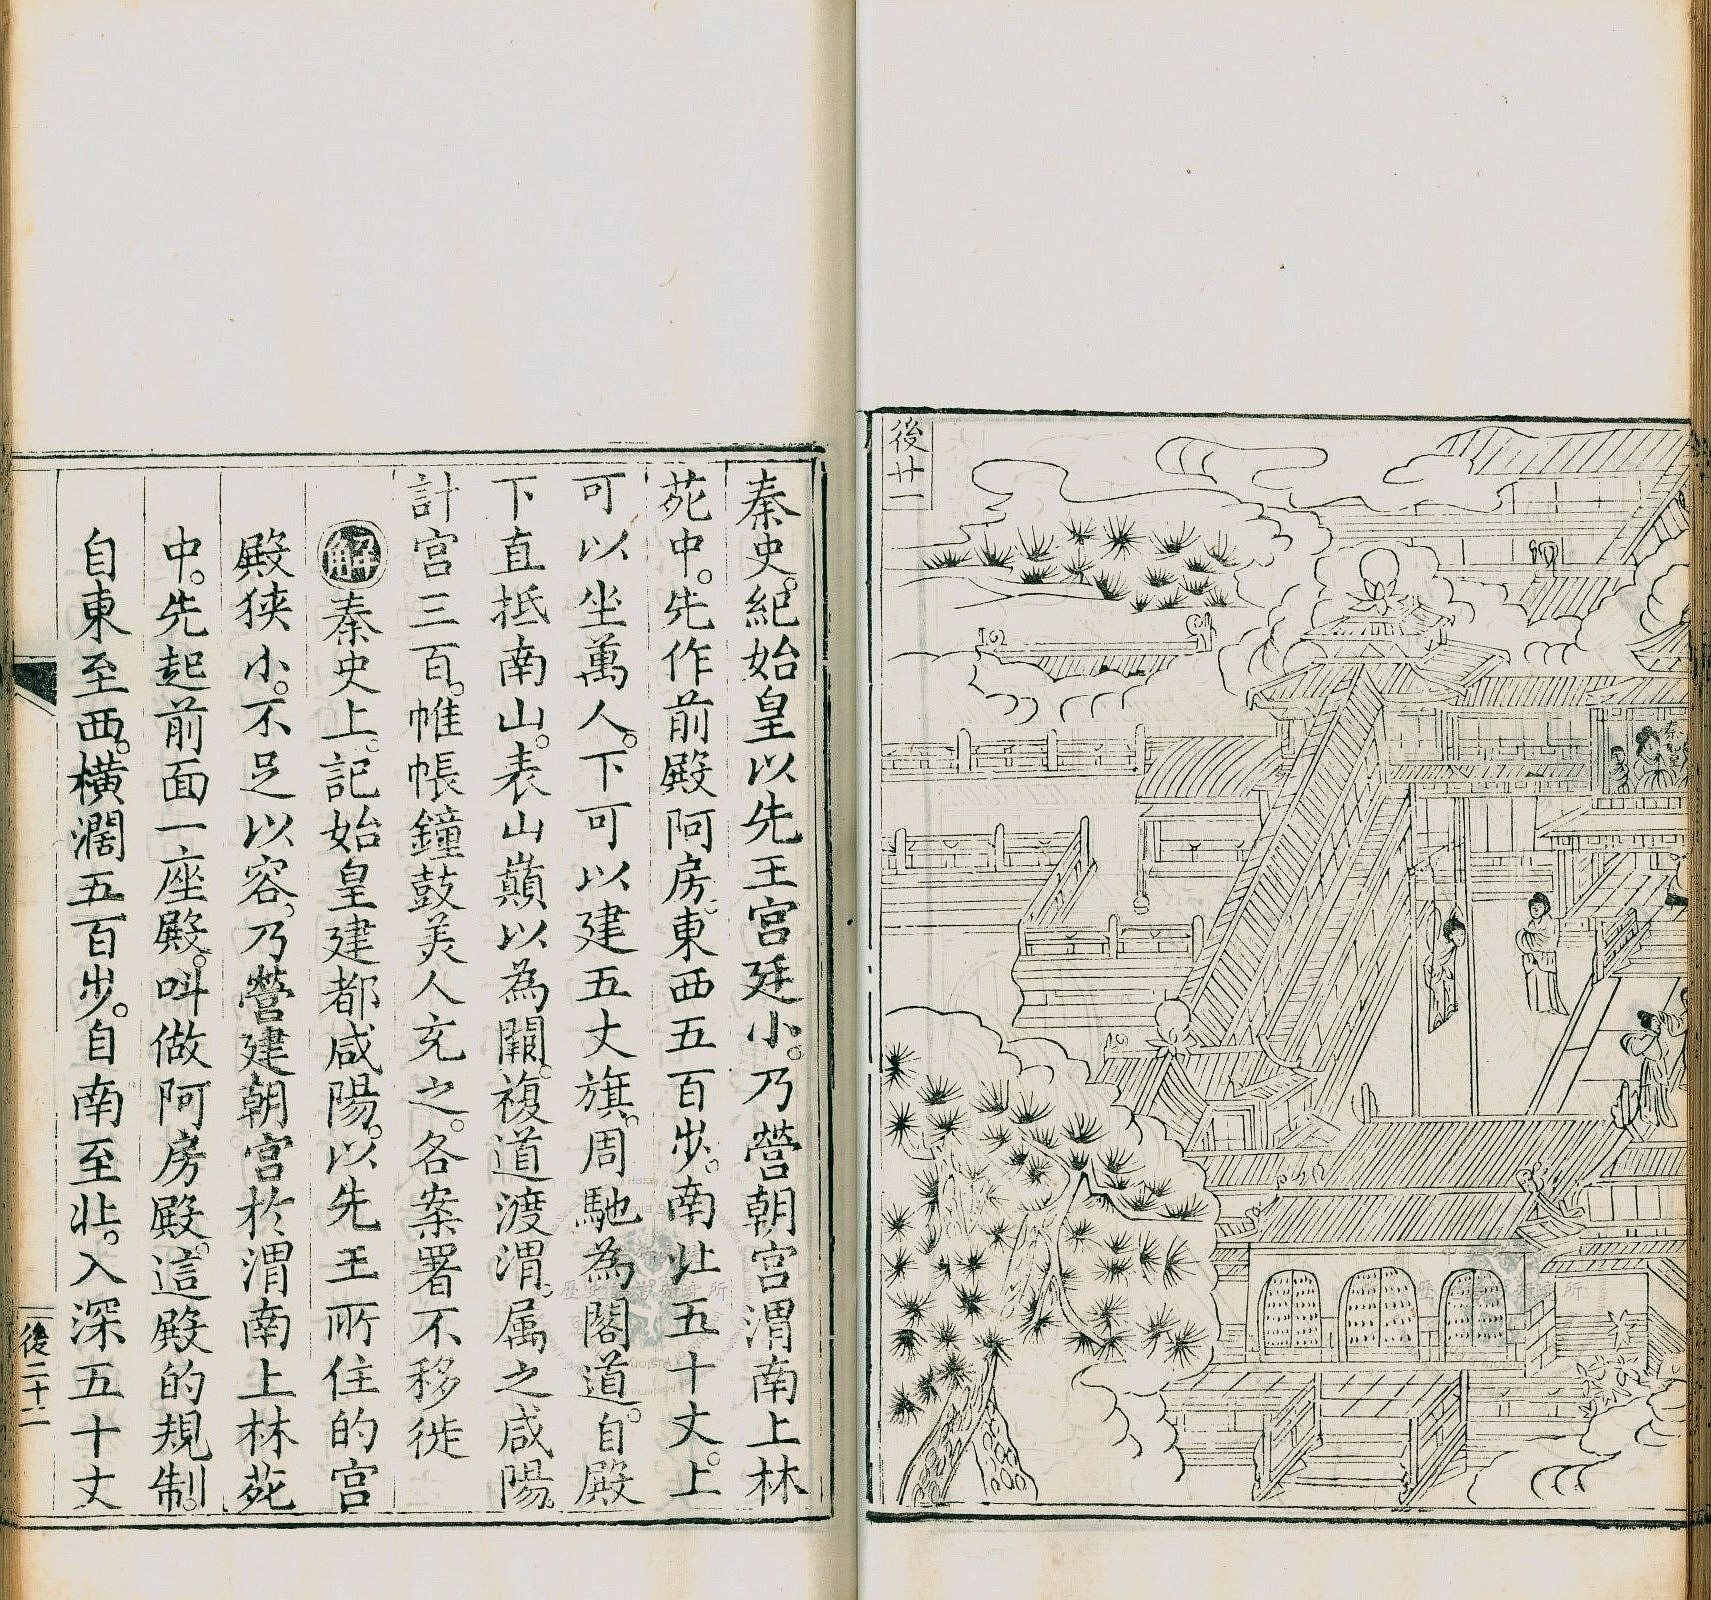 後廿一
秦始皇
秦史。紀始皇以先王宮廷小。乃營朝宮渭南上林
苑中。先作前殿阿房。東西五百步。南北五十丈。上
可以坐萬人。下可以建五丈旗。周馳為閣道。自殿
下直抵南山。表山巔以為闕。複道渡渭。属之咸陽。
計宮三百。帷帳鐘鼓美人充之。各案署不移徙
解秦史上。記始皇建都咸陽。以先王所住的宮
殿狹小。不足以容。乃營建朝宮於渭南上林苑
中。先起前面一座殿。叫做阿房殿。這殿的規制。
自東至西。橫濶五百步。自南至北。入深五十丈
後二十二